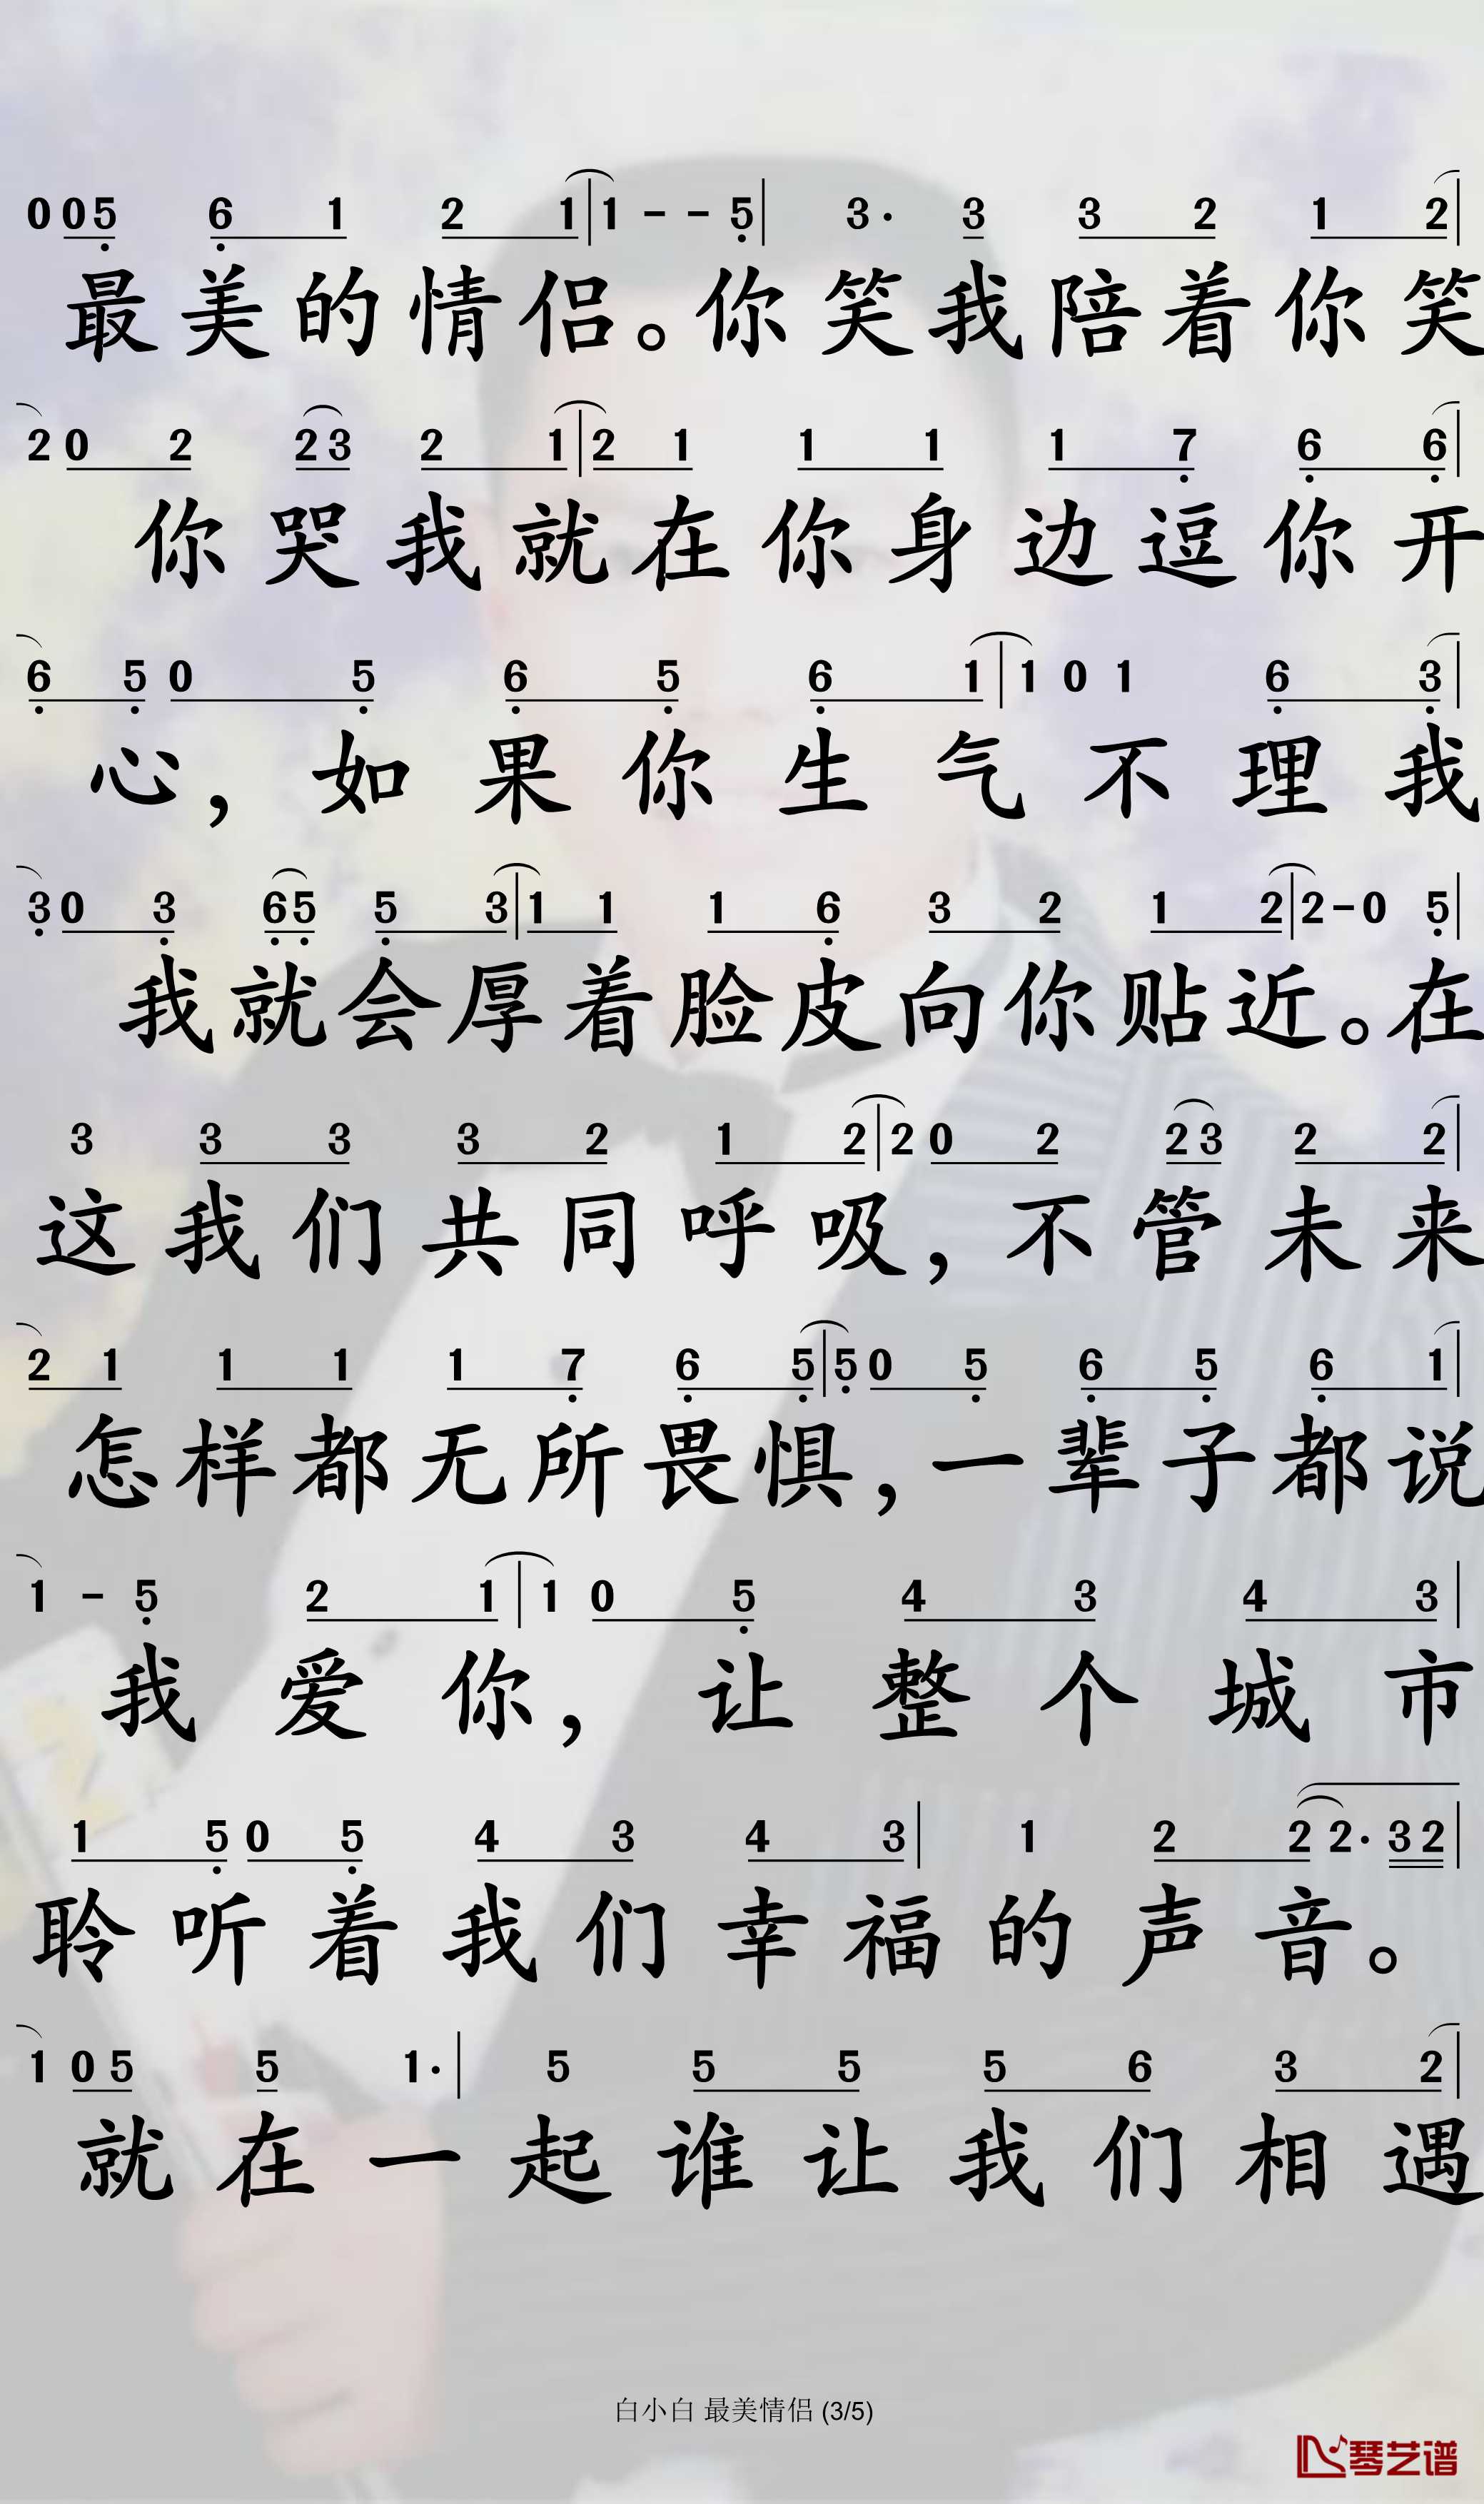 0 0 5 6 1 2 1 | 1 - - 5 | 3· 3 3 2 1 2 |
最美的情侣。你笑我陪着你笑
2 0 2 2 3 2 1 | 2 1 1 1 1 7 6 6 |
你哭我就在你身边逗你开
6 5 0 5 6 5 6 1 | 1 0 1 6 3 |
心，如果你生气不理我
3 0 3 6 5 5 3 | 1 1 1 6 3 2 1 2 | 2 - 0 5 |
我就会厚着脸皮向你贴近。在
3 3 3 3 2 1 2 | 2 0 2 2 3 2 2 |
这我们共同呼吸，不管未来
2 1 1 1 1 7 6 5 | 5 0 5 6 5 6 1 |
怎样都无所畏惧，一辈子都说
1 - 5 2 1 | 1 0 5 4 3 4 3 |
我爱你，让整个城市
1 5 0 5 4 3 4 3 | 1 2 2 2· 3 2 |
聆听着我们幸福的声音。
1 0 5 5 1· | 5 5 5 5 6 3 2 |
就在一起谁让我们相遇
白小白 最美情侣 (3/5)
琴艺谱